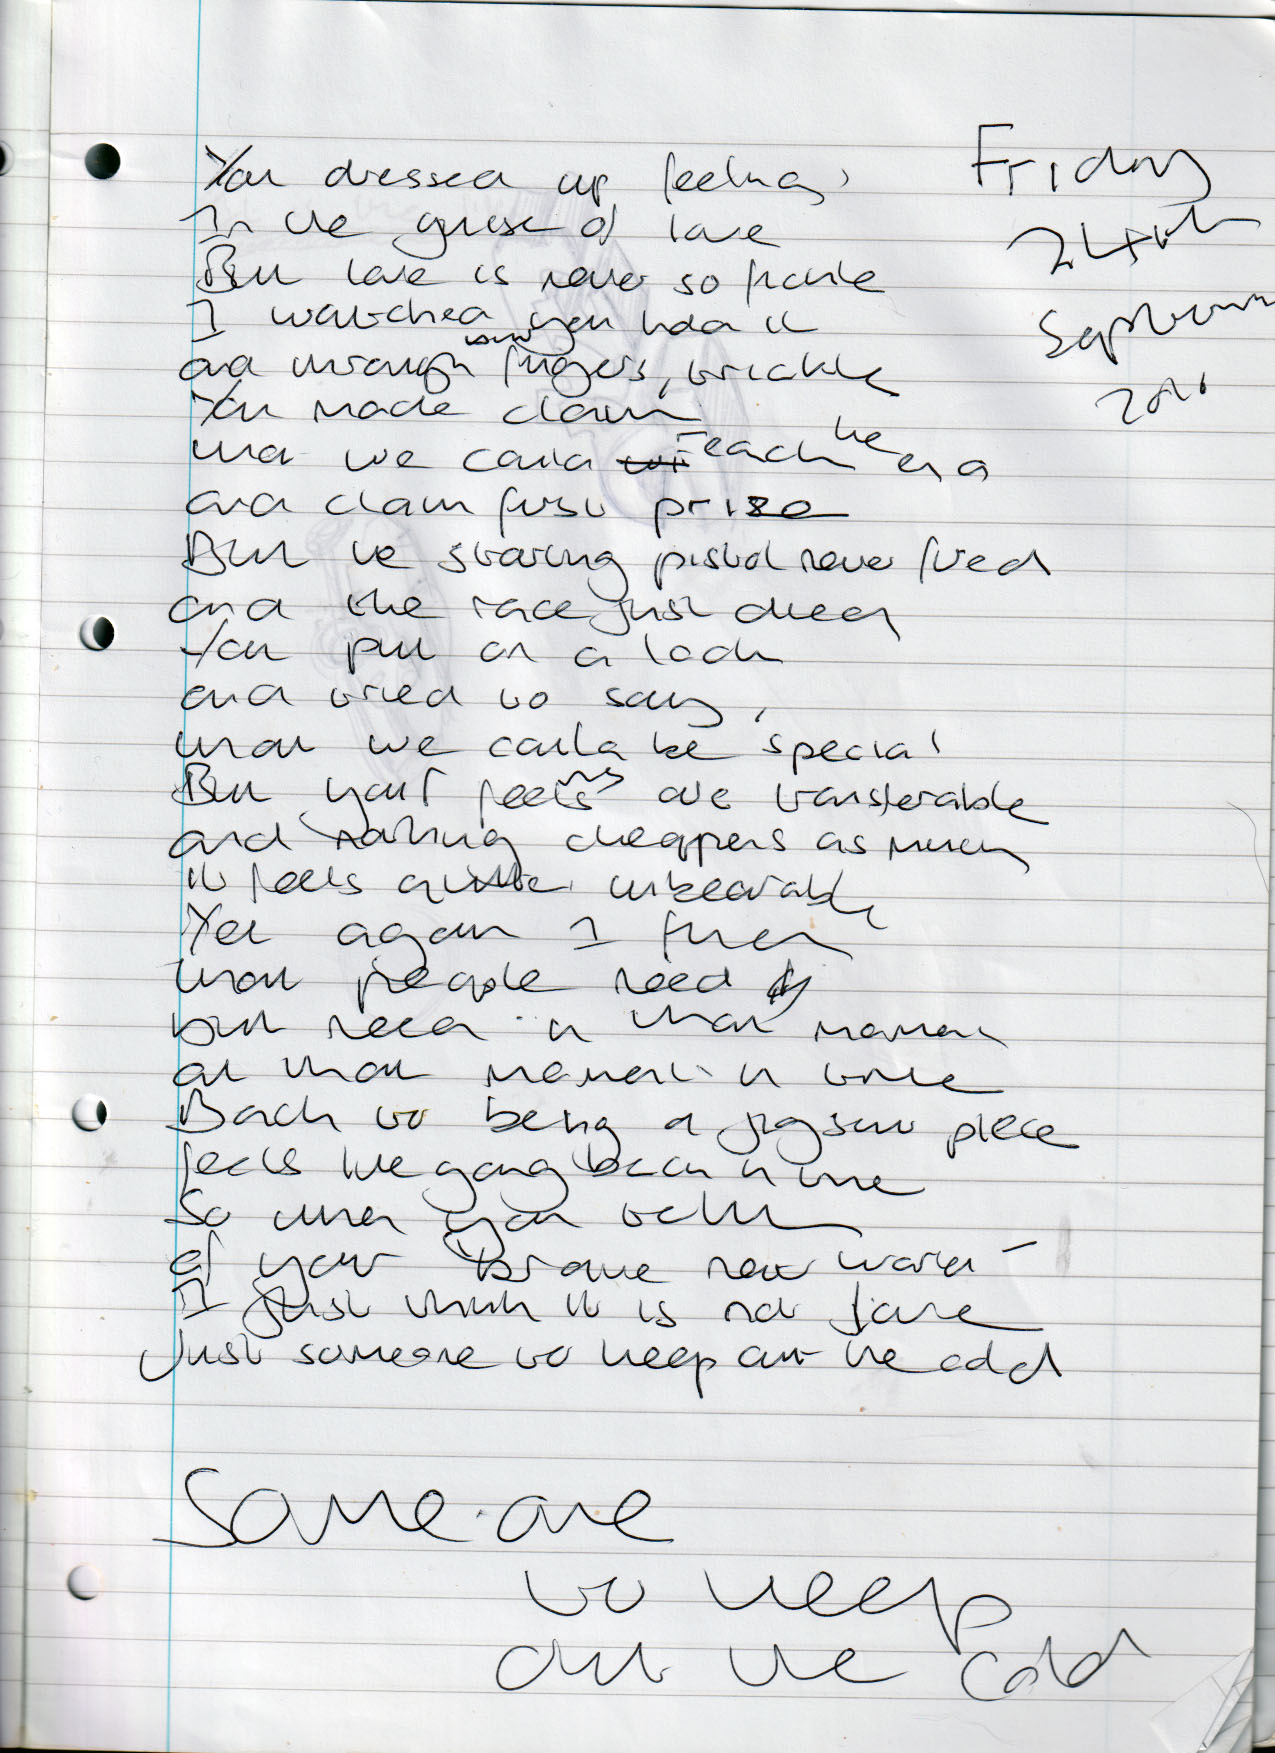 You dressed up feelings
In the guise of love
But love is never so fickle
I watched you hold it
and through your fingers, trickle
You made claim
that we could reach the end
and claim first prize
But the starting pistol never fired
and the race just died
You put on a look
and tried to say,
that we could be special
But your feelings are transferable
and nothing cheapens as much
it feels quite unbearable
Yet again I find
that people need
but need in that moment
at that moment in time
Back to being a jigsaw piece
feels like going back in time
So when you tell me
of your brave new world
I just think it is not love
Just someone to keep out the cold
Friday
24th
September
Someone
to keep
out the cold